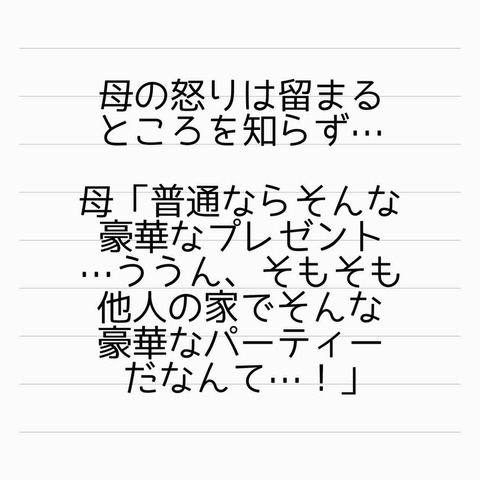 母の怒りは留まる
ところを知らず…
母「普通ならそんな
豪華なプレゼント
…ううん、そもそも
他人の家でそんな
豪華なパーティー
だなんて…！」